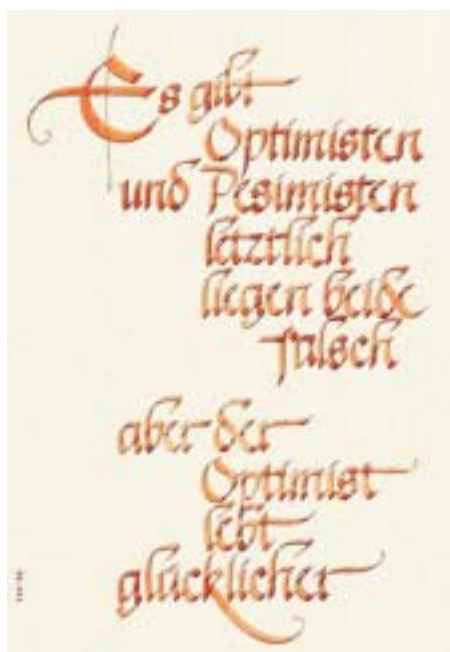 Es gibt
Optimisten
und Pesimisten
letztlich
liegen beide
falsch
aber der
Optimist
lebt
glücklicher